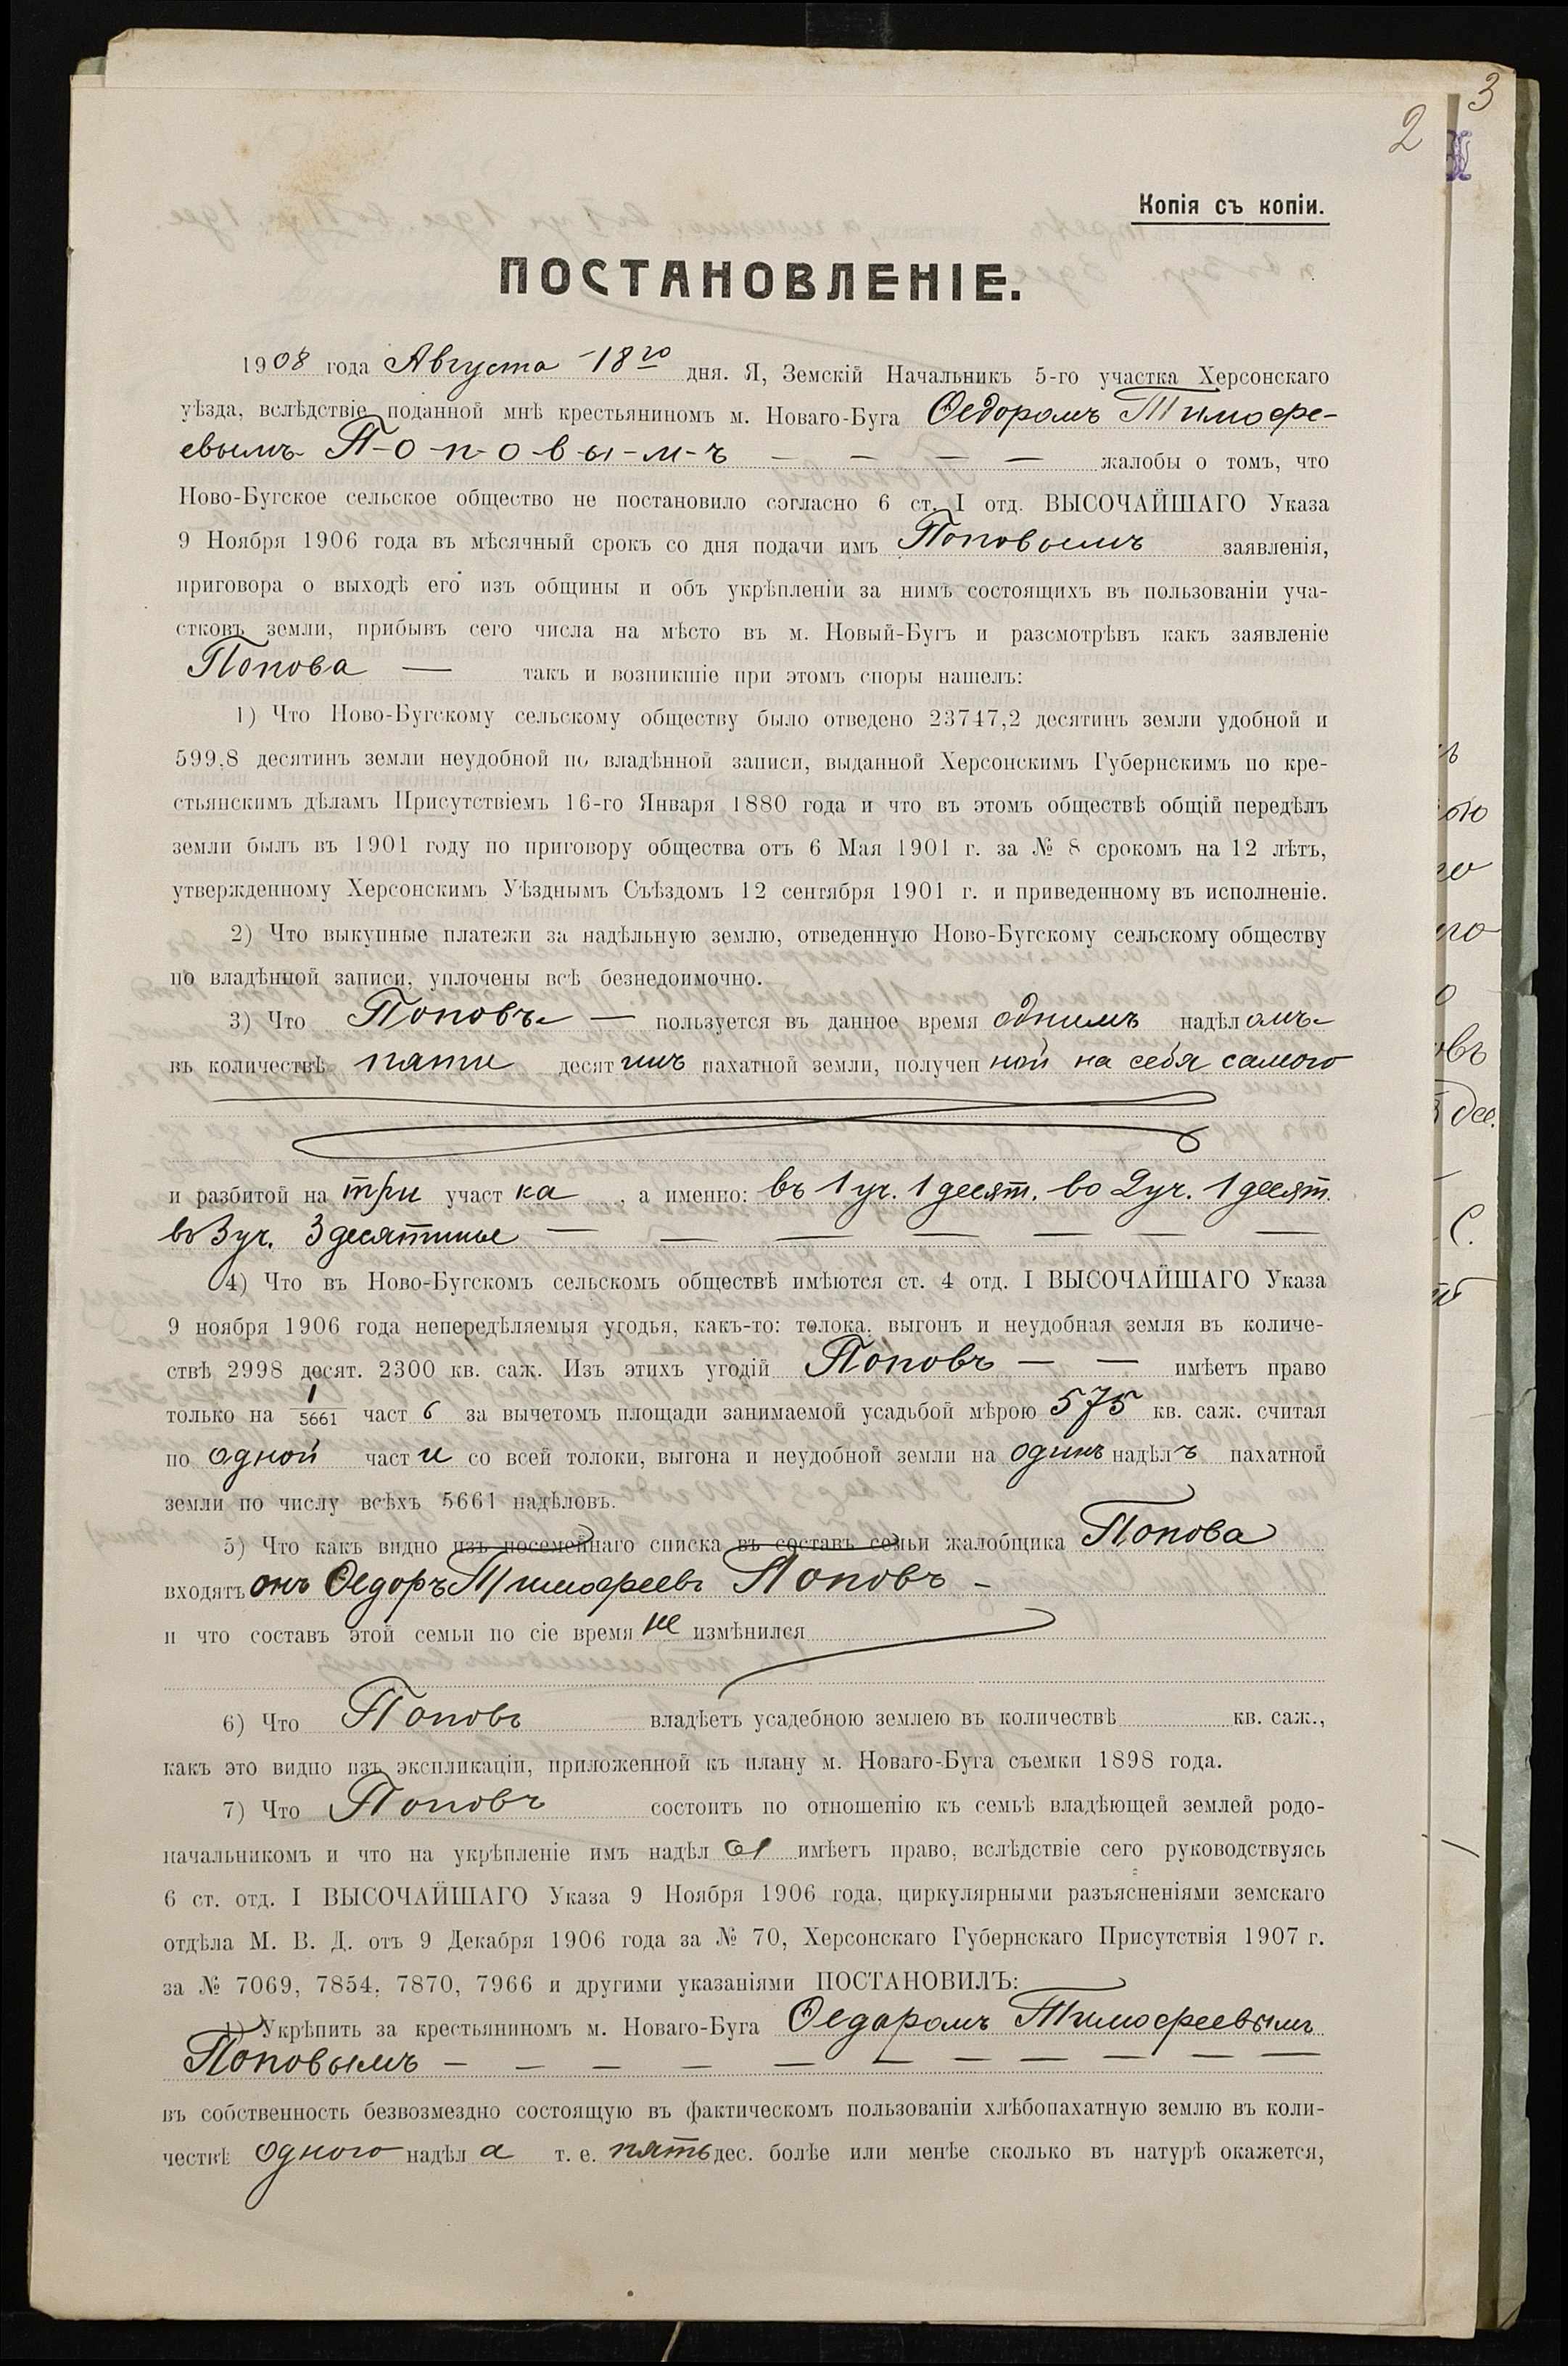 3
2
Копія съ копіи.
ПОСТАНОВЛЕНІЕ.
1908 года Августа 18го дня. Я, Земскій Начальникъ 5-го участка Херсонскаго
уѣзда, вслѣдствіе поданной мнѣ крестьяниномъ м. Новаго-Буга Ѳедоромъ Тимофе-
евымъ П-о-п-о-в-ы-м-ъ — — — — жалобы о томъ, что
Ново-Бугское сельское общество не постановило согласно 6 ст. I отд. ВЫСОЧАЙШАГО Указа
9 Ноября 1906 года въ мѣсячный срокъ со дня подачи имъ Поповымъ заявленія,
приговора о выходѣ его изъ общины и объ укрѣпленіи за нимъ состоящихъ въ пользованіи уча-
стковъ земли, прибывъ сего числа на мѣсто въ м. Новый-Бугъ и разсмотрѣвъ какъ заявленіе
Попова — такъ и возникшіе при этомъ споры нашелъ:
1) Что Ново-Бугскому сельскому обществу было отведено 23747,2 десятинъ земли удобной и
599,8 десятинъ земли неудобной по владѣнной записи, выданной Херсонскимъ Губернскимъ по кре-
стьянскимъ дѣламъ Присутствіемъ 16-го Января 1880 года и что въ этомъ обществѣ общій передѣлъ
земли былъ въ 1901 году по приговору общества отъ 6 Мая 1901 г. за № 8 срокомъ на 12 лѣтъ,
утвержденному Херсонскимъ Уѣзднымъ Съѣздомъ 12 сентября 1901 г. и приведенному въ исполненіе.
2) Что выкупные платежи за надѣльную землю, отведенную Ново-Бугскому сельскому обществу
по владѣнной записи, уплочены всѣ безнедоимочно.
3) Что Поповъ — пользуется въ данное время однимъ надѣломъ
въ количествѣ пяти десятинъ пахатной земли, полученной на себя самого
и разбитой на три участка, а именно: въ 1 уч. 1 десят. во 2 уч. 1 десят.
въ 3 уч. 3 десятины — — — — — — —
4) Что въ Ново-Бугскомъ сельскомъ обществѣ имѣются ст. 4 отд. I ВЫСОЧАЙШАГО Указа
9 ноября 1906 года непередѣляемыя угодья, какъ-то: толока, выгонъ и неудобная земля въ количе-
ствѣ 2998 десят. 2300 кв. саж. Изъ этихъ угодій Поповъ — — имѣетъ право
только на 1/5661 часть за вычетомъ площади занимаемой усадьбой мѣрою 575 кв. саж. считая
по одной части со всей толоки, выгона и неудобной земли на одинъ надѣлъ пахатной
земли по числу всѣхъ 5661 надѣловъ.
5) Что какъ видно изъ посемейнаго списка въ составъ семьи жалобщика Попова
входятъ онъ Ѳедоръ Тимофеевъ Поповъ -
и что составъ этой семьи по сіе время не измѣнился
6) Что Поповъ владѣетъ усадебною землею въ количествѣ кв. саж.,
какъ это видно изъ экспликаціи, приложенной къ плану м. Новаго-Буга съемки 1898 года.
7) Что Поповъ состоитъ по отношенію къ семьѣ владѣющей землей родо-
начальникомъ и что на укрѣпленіе имъ надѣла имѣетъ право, вслѣдствіе сего руководствуясь
6 ст. отд. I ВЫСОЧАЙШАГО Указа 9 Ноября 1906 года, циркулярными разъясненіями земскаго
отдѣла М. В. Д. отъ 9 Декабря 1906 года за № 70, Херсонскаго Губернскаго Присутствія 1907 г.
за № 7069, 7854, 7870, 7966 и другими указаніями ПОСТАНОВИЛЪ:
1) Укрѣпить за крестьяниномъ м. Новаго-Буга Ѳедаромъ Тимофеевымъ
Поповымъ — — — — — — — — — —
въ собственность безвозмездно состоящую въ фактическомъ пользованіи хлѣбопахатную землю въ коли-
чествѣ одного надѣла т. е. пять дес. болѣе или менѣе сколько въ натурѣ окажется,